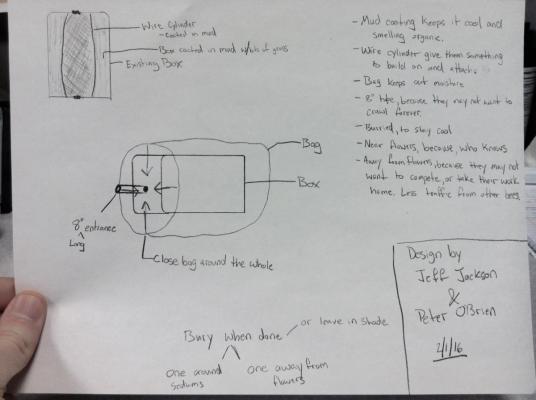 Wire Cylinder
- coated in mud
Box coated in mud w/bits of grass
Existing Box
- Mud coating keeps it cool and
smelling organic.
- Wire cylinder give them something
to build on and attach.
- Bag keeps out moisture
- 8" tube, because they may not want to
crawl forever.
- Burried, to stay cool
- Near flowers, because, who knows
- Away from flowers, because they may not
want to compete, or take their work
home. Less traffic from other bees.
Bag
Box
8" entrance
Long
Close bag around the whole
Bury when done
or leave in shade
one around
sedums
one away from
flowers
Design by
Jeff Jackson
&
Peter O'Brien
2/1/16